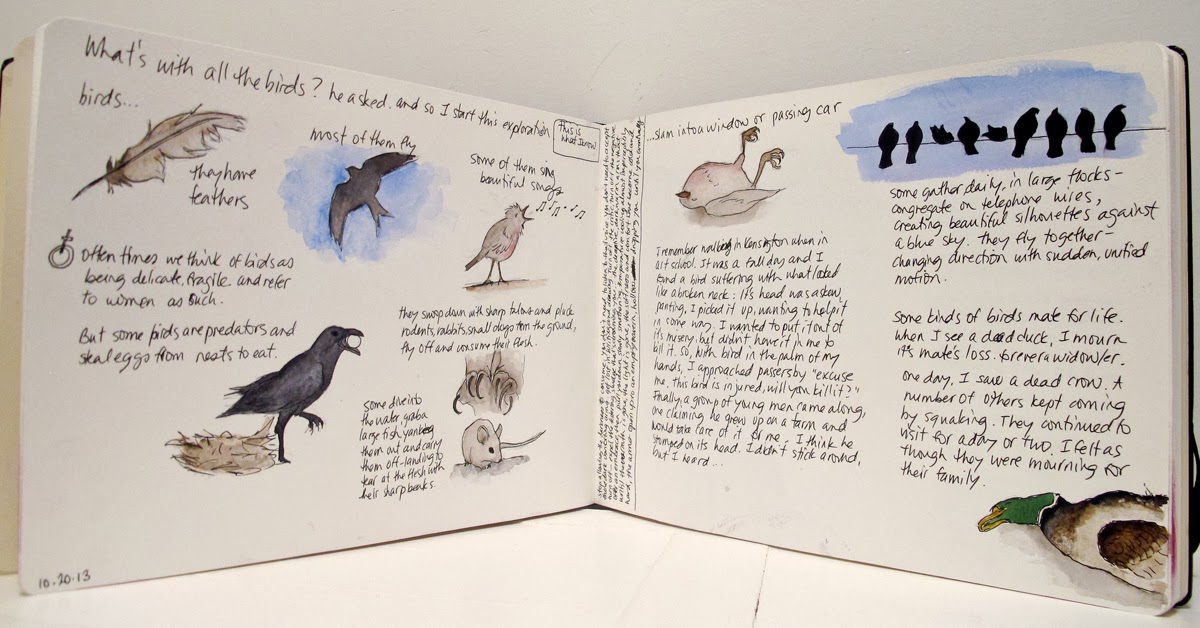 What's with all the birds? he asked. and so I start this exploration
This is
what I know.
birds...
they have
feathers
most of them fly
some of them sing
beautiful songs
often times we think of birds as
being delicate, fragile and refer
to women as such.
But some birds are predators and
steal eggs from nests to eat.
they swoop down with sharp talons and pluck
rodents, rabbits, small dogs from the ground,
fly off and consume their flesh.
Some dive into
the water, grab a
large fish, yanking
them out and carry
them off-landing to
tear at the flesh with
their sharp beaks.
10.20.13
...slam into a window or passing car
I remember walking in Kensington when in
art school. It was a fall day and I
found a bird suffering with what looked
like a broken neck: its head was askew,
panting, I picked it up, wanting to help it
in some way. I wanted to put it out of
its misery, but didn't have it in me to
kill it. So, with bird in the palm of my
hands, I approached passersby "excuse
me, this bird is injured, will you kill it?"
Finally, a group of young men came along,
one claiming he grew up on a farm and
would take care of it for me. I think he
stomped on its head. I didn't stick around,
but I heard...
some gather daily, in large flocks-
congregate on telephone wires,
creating beautiful silhouettes against
a blue sky. they fly together-
changing direction with sudden, unified
motion.
some kinds of birds mate for life.
when I see a dead duck, I mourn
its mate's loss. forever a widow/er.
one day, I saw a dead crow. A
number of others kept coming
by squaking. They continued to
visit for a day or two. I felt as
though they were mourning for
their family.